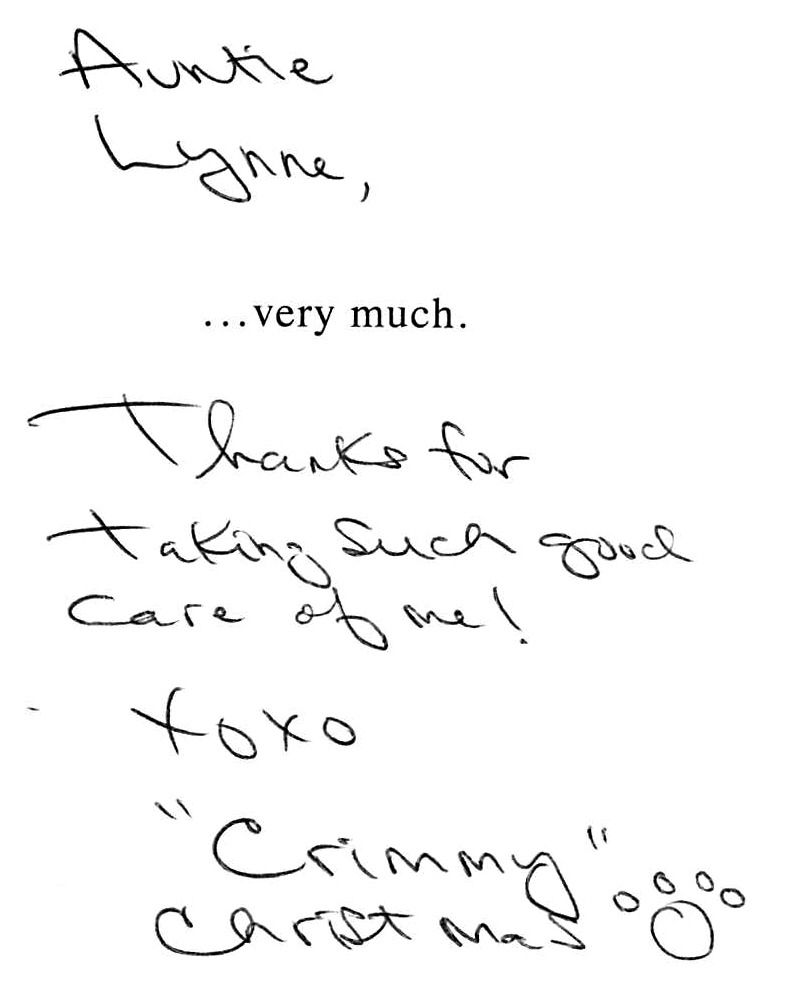 Auntie
Lynne,
...very much.
Thanks for
taking such good
care of me!
xoxo
"Crimmy"
Christmas